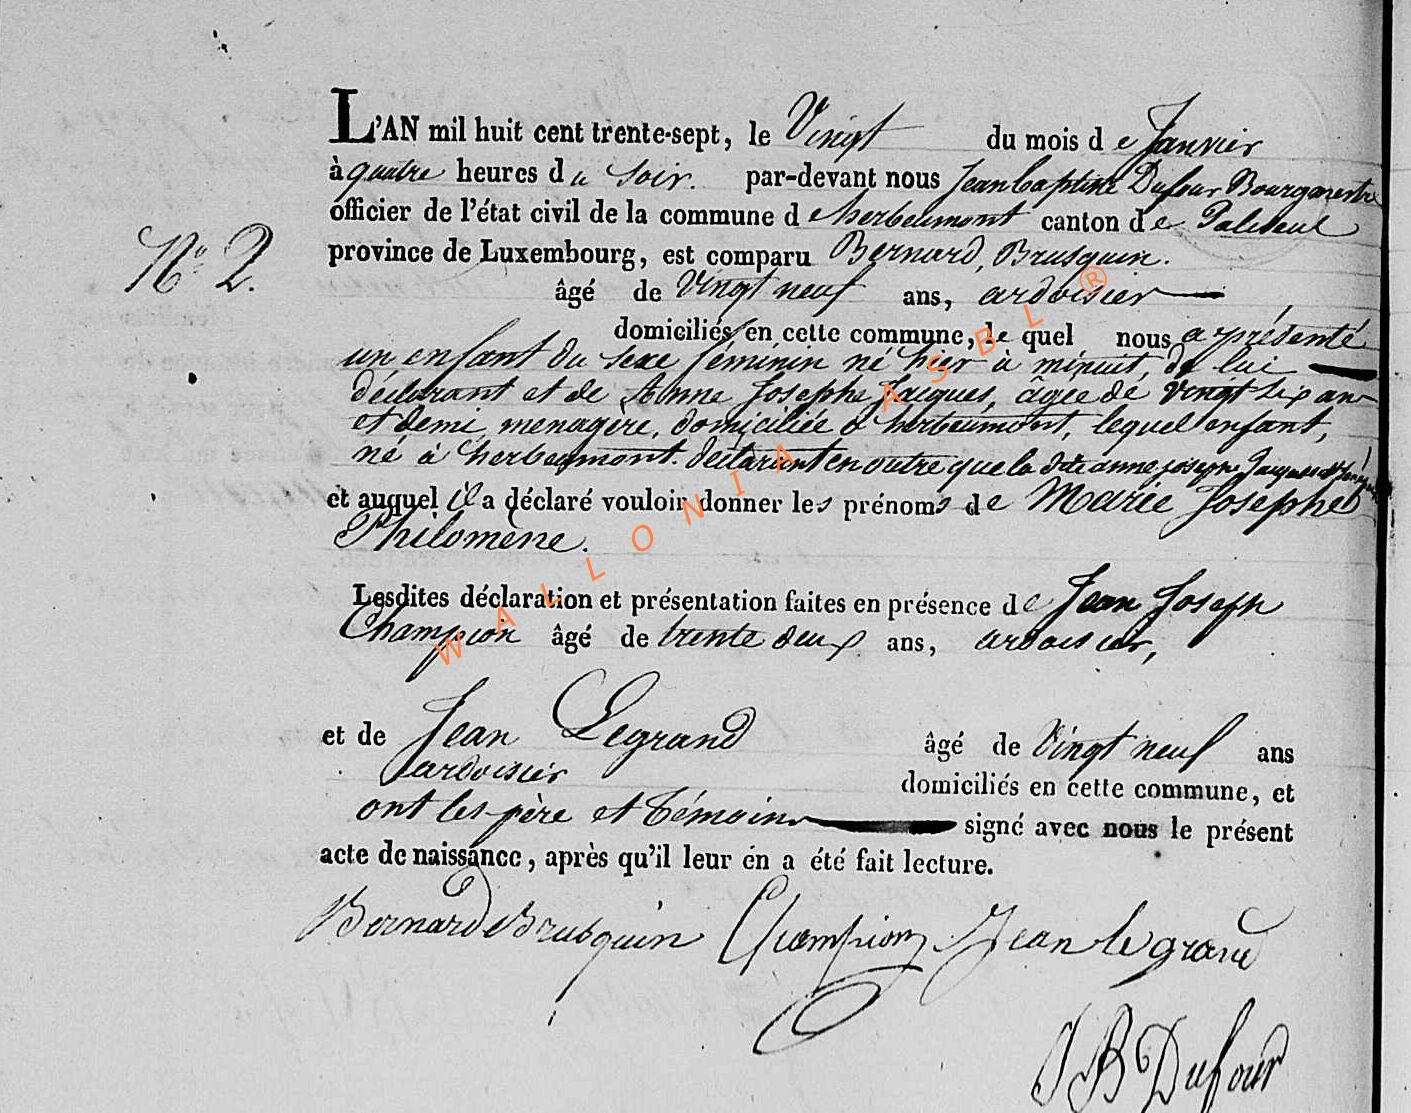 L'AN mil huit cent trente-sept, le Vingt du mois de Janvier
à quatre heures du soir. par-devant nous Jean baptiste Dufour Bourgmestre
officier de l'état civil de la commune d'herbeumont canton de Paliseul
N° 2.
province de Luxembourg, est comparu Bernard, Brusquin.
âgé de Vingt neuf ans, ardoisier
domiciliés en cette commune, le quel nous a présenté
un enfant du sexe féminin né hier à minuit, de lui
déclarant et de Anne Josephe Jacques, âgée de vingt six an
et demi, menagère, domiciliée à herbeumont, lequel enfant,
né à herbeumont. déclarant en outre que la dite anne joseph Jacques
et auquel il a déclaré vouloir donner les prénoms de Marie Josephe
Philomène.
Lesdites déclaration et présentation faites en présence de Jean Joseph
Champion âgé de trente deux ans, ardoisier,
et de Jean Legrand âgé de Vingt neuf ans
ardoisier domiciliés en cette commune, et
ont les père et témoins signé avec nous le présent
acte de naissance, après qu'il leur en a été fait lecture.
Bernard Brusquin Champion Jean legrand
JB Dufour
WALLONIA ASBL ®